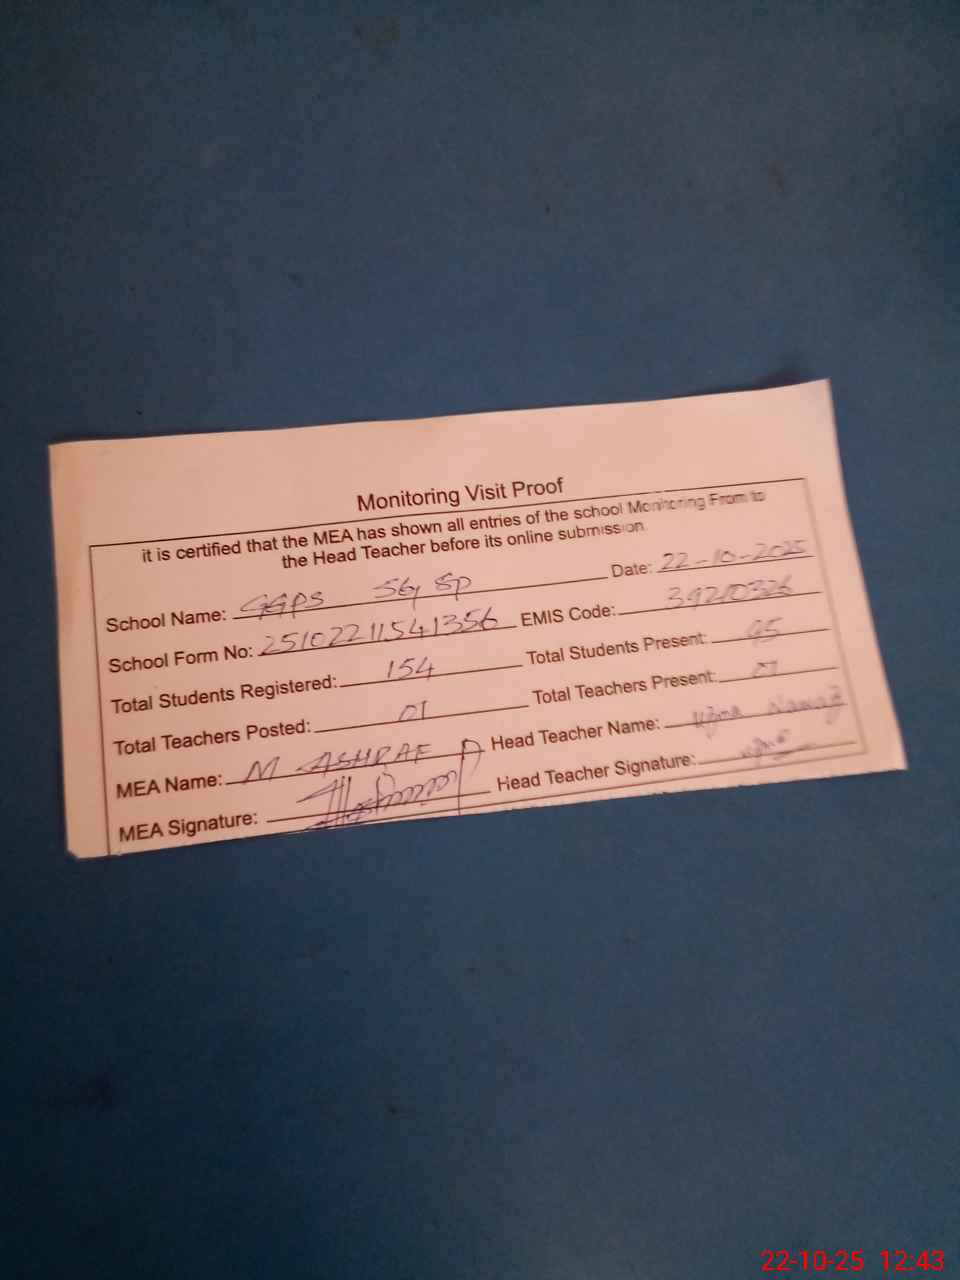 Monitoring Visit Proof
it is certified that the MEA has shown all entries of the school Monitoring From to
the Head Teacher before its online submission
School Name: GGPS SG SP Date: 22-10-2025
School Form No: 25102211541356 EMIS Code: 39210326
Total Students Registered: 154 Total Students Present: 95
Total Teachers Posted: 01 Total Teachers Present: 01
MEA Name: M ASHRAF Head Teacher Name: Uzma Nawaz
MEA Signature: Head Teacher Signature: Uzma
22-10-25 12:43